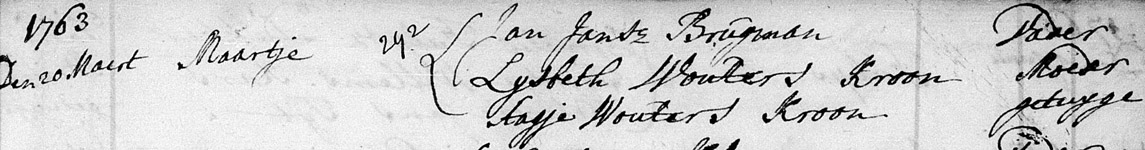 1763
Den 20 Maert Maartje 292 Jan Jantz Brugman Vader
Lysbeth Wouters Kroon Moeder
Aagje Wouters Kroon getuyge